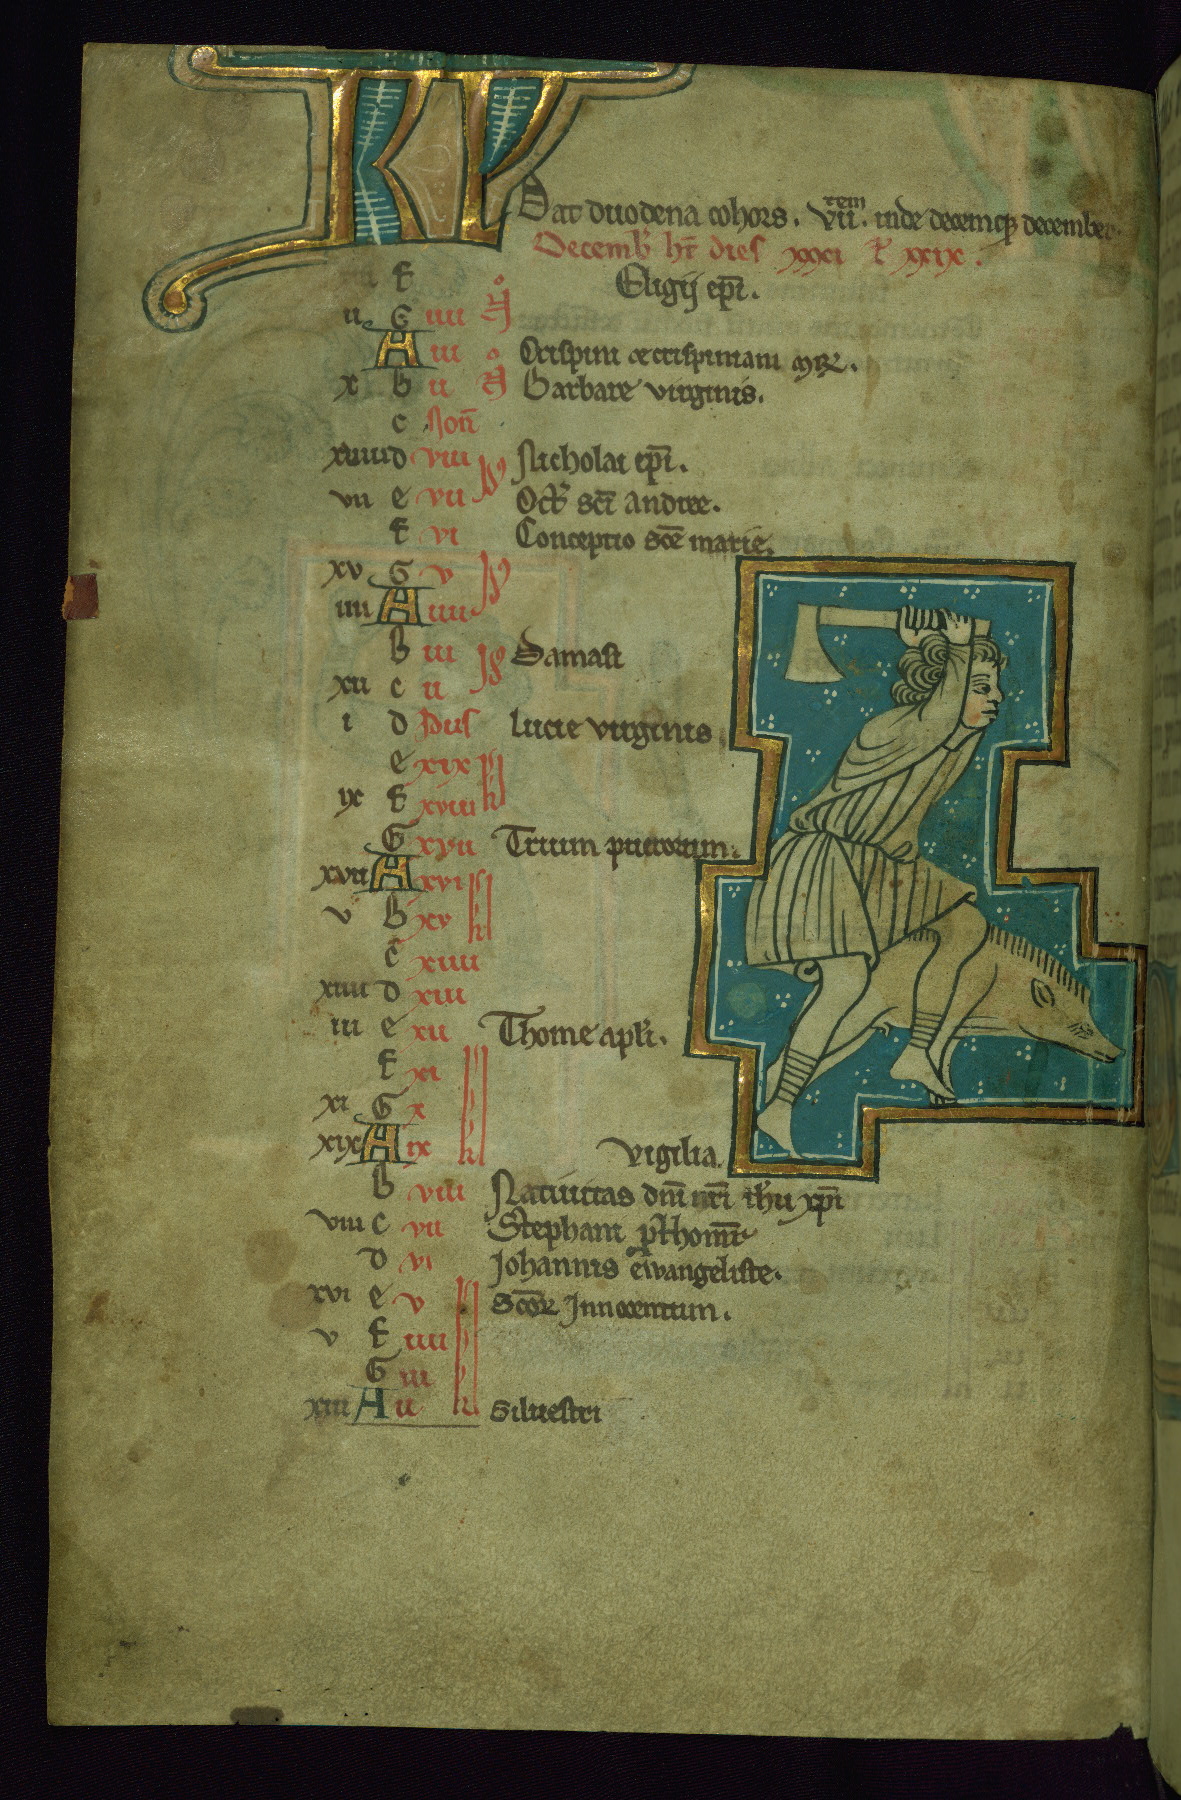 KL
Dat duodena cohors. vii^tem. inde decemq; december.
Decemb' ht dies xxxi l' xxix.
F Eligij epi.
ii G iiii N°
A iii N° Crispini et crispiniani mr.
x B ii N Barbare virginis.
c Non
xviii d viii Nicholai epi.
vii e vii Oct' sci andree.
F vi Conceptio sce marie.
xv G v
iiii A iiii
B iii Id Damasi
xii c ii
i d Idus Lucie virginis
e xix
ix F xviii kl
G xvii Trium puerorum.
xvii A xvi
v B xv kl
C xiiii
xiiii d xiii
iii e xii Thome apli.
F xi
xi G x
xix A ix kl Vigilia.
B viii Natiuitas dni nri ihu xpi
viii C vii Stephani prthom
d vi Johannis ewangeliste.
xvi e v Scor Innocentum.
v F iiii
G iii
xiii A ii kl Siluestri